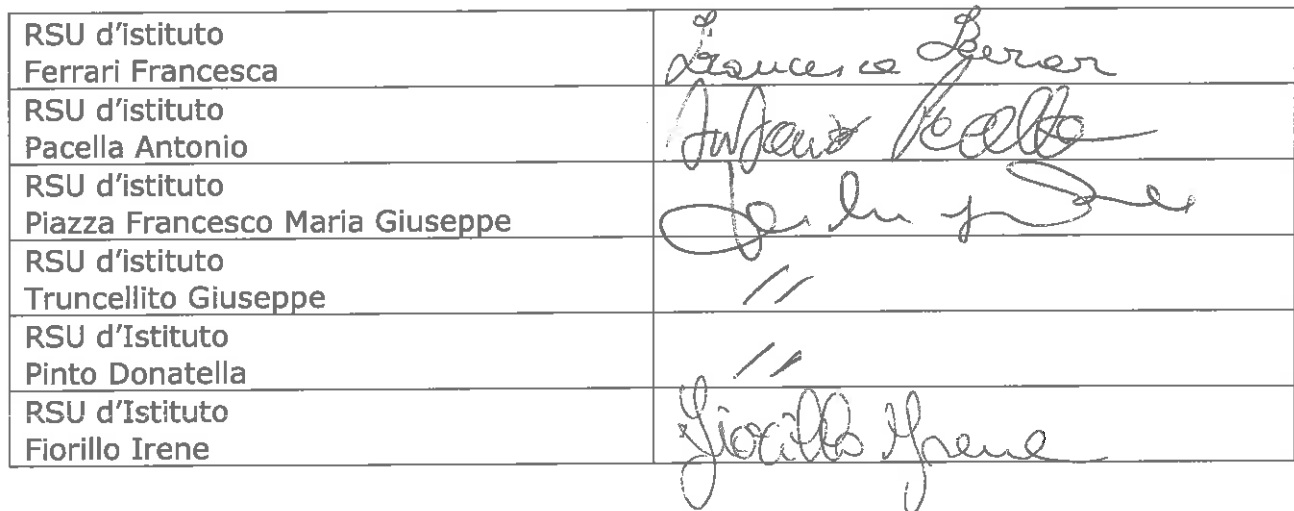 RSU d'istituto
Ferrari Francesca
Francesca Ferrari
RSU d'istituto
Pacella Antonio
Antonio Pacella
RSU d'istituto
Piazza Francesco Maria Giuseppe
RSU d'istituto
Truncellito Giuseppe
//
RSU d'Istituto
Pinto Donatella
//
RSU d'Istituto
Fiorillo Irene
Fiorillo Irene